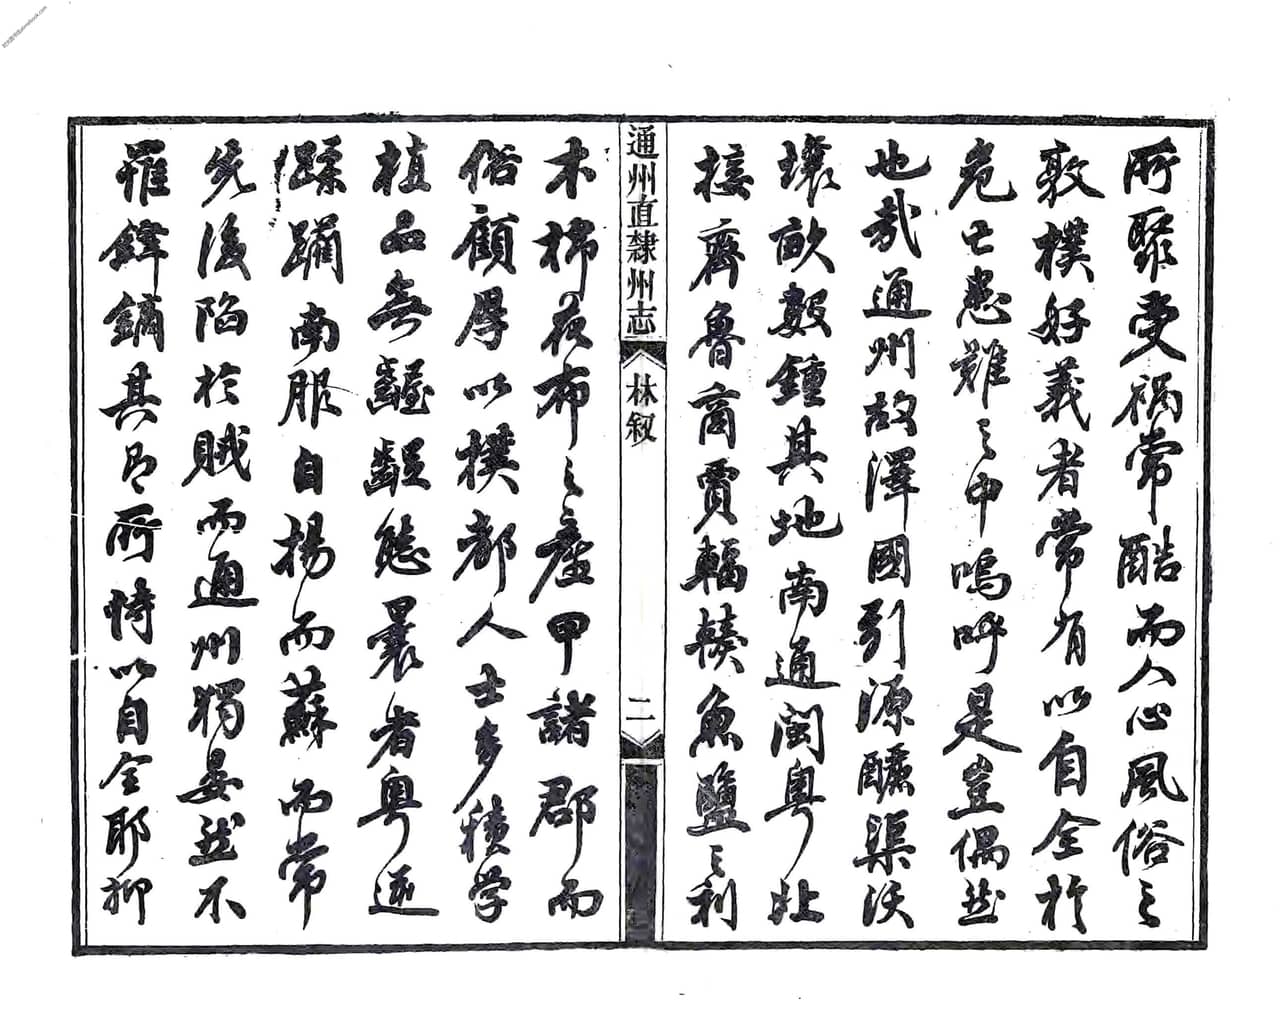 所聚受禍常酷而人心風俗之
敦樸好義者常有以自全於
危亡患難之中嗚呼是豈偶然
也哉通州故澤國引源釃渠沃
壤畝數鍾其地南通閩粵北
接齊魯商賈輻輳魚鹽之利
通州直隸州志
林叙
二
木棉夜布之產甲諸郡而
俗顧厚以樸都人士多積學
植品無齷齪態曩者粵逆
蹂躪南服自揚而蘇而常
先後陷於賊而通州獨晏然不
罹鋒鏑其即所恃以自全耶抑